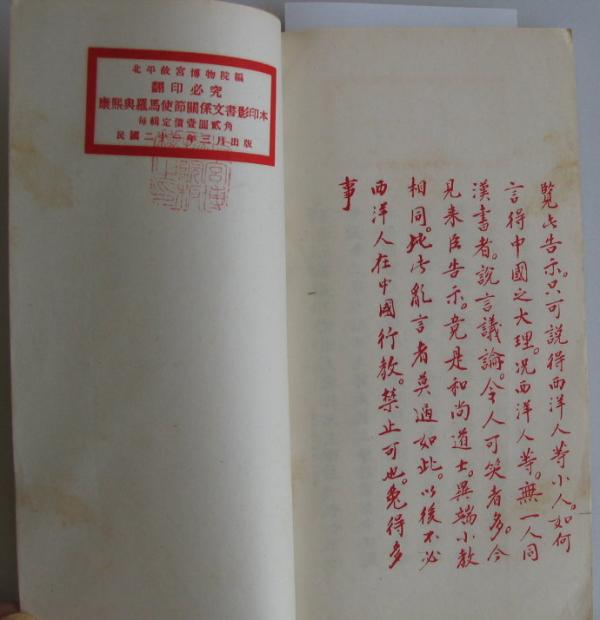 北平故宮博物院編
翻印必究
康熙與羅馬使節關係文書影印本
每輯定價壹圓貳角
民國二十一年三月出版
覽此告示。只可說得西洋人等小人。如何
言得中國之大理。况西洋人等。無一人同
漢書者。說言議論。令人可笑者多。今
見来臣告示。竟是和尚道士。異端小教
相同。此等亂言者莫過如此。以後不必
西洋人在中國行教。禁止可也。免得多
事